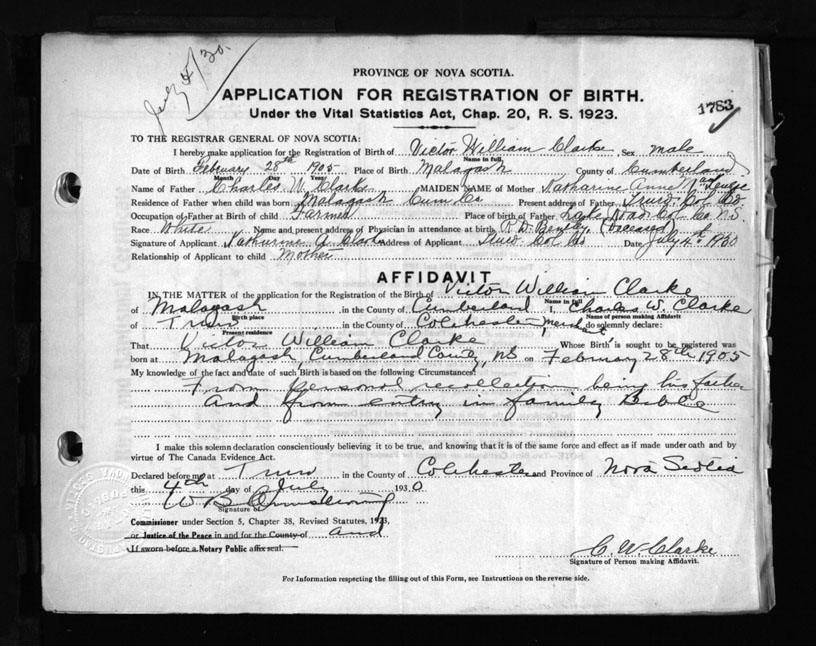 July 4/30.
PROVINCE OF NOVA SCOTIA.
APPLICATION FOR REGISTRATION OF BIRTH.
Under the Vital Statistics Act, Chap. 20, R. S. 1923.
1783
TO THE REGISTRAR GENERAL OF NOVA SCOTIA:
I hereby make application for the Registration of Birth of Victor William Clarke Sex male
Name in full,
Date of Birth February 28th 1905 Place of Birth Malagash County of Cumberland
Month Day Year
Name of Father Charles W. Clark MAIDEN NAME of Mother Katharine Anne
Residence of Father when child was born Malagash Cum Co Present address of Father Truro. Col Co
Occupation of Father at Birth of child Farmer Place of birth of Father Road Col Co N.S.
Race White Name and present address of Physician in attendance at birth R D Bentley (Deceased)
Signature of Applicant Katharine A. Clarke Address of Applicant Truro Col Co Date July 4th 1930
Relationship of Applicant to child Mother
AFFIDAVIT
IN THE MATTER of the application for the Registration of the Birth of Victor William Clarke
Name in full
of Malagash in the County of Cumberland I, Charles W. Clarke
Birth place Name of person making Affidavit
of Truro in the County of Colchester merchant do solemnly declare:
Present residence
That Victor William Clarke Whose Birth is sought to be registered was
born at Malagash, Cumberland County, NS on February 28th 1905
My knowledge of the fact and date of such Birth is based on the following Circumstances:
From personal recollection being his father
and from entry in family Bible
I make this solemn declaration conscientiously believing it to be true, and knowing that it is of the same force and effect as if made under oath and by
virtue of The Canada Evidence Act.
Declared before me at Truro in the County of Colchester and Province of Nova Scotia
this 4th day of July 1930
W B Armstrong
Signature of
Commissioner under Section 5, Chapter 38, Revised Statutes, 1923,
or Justice of the Peace in and for the County of and
If sworn before a Notary Public affix seal.
C. W. Clarke
Signature of Person making Affidavit.
For Information respecting the filling out of this Form, see Instructions on the reverse side.